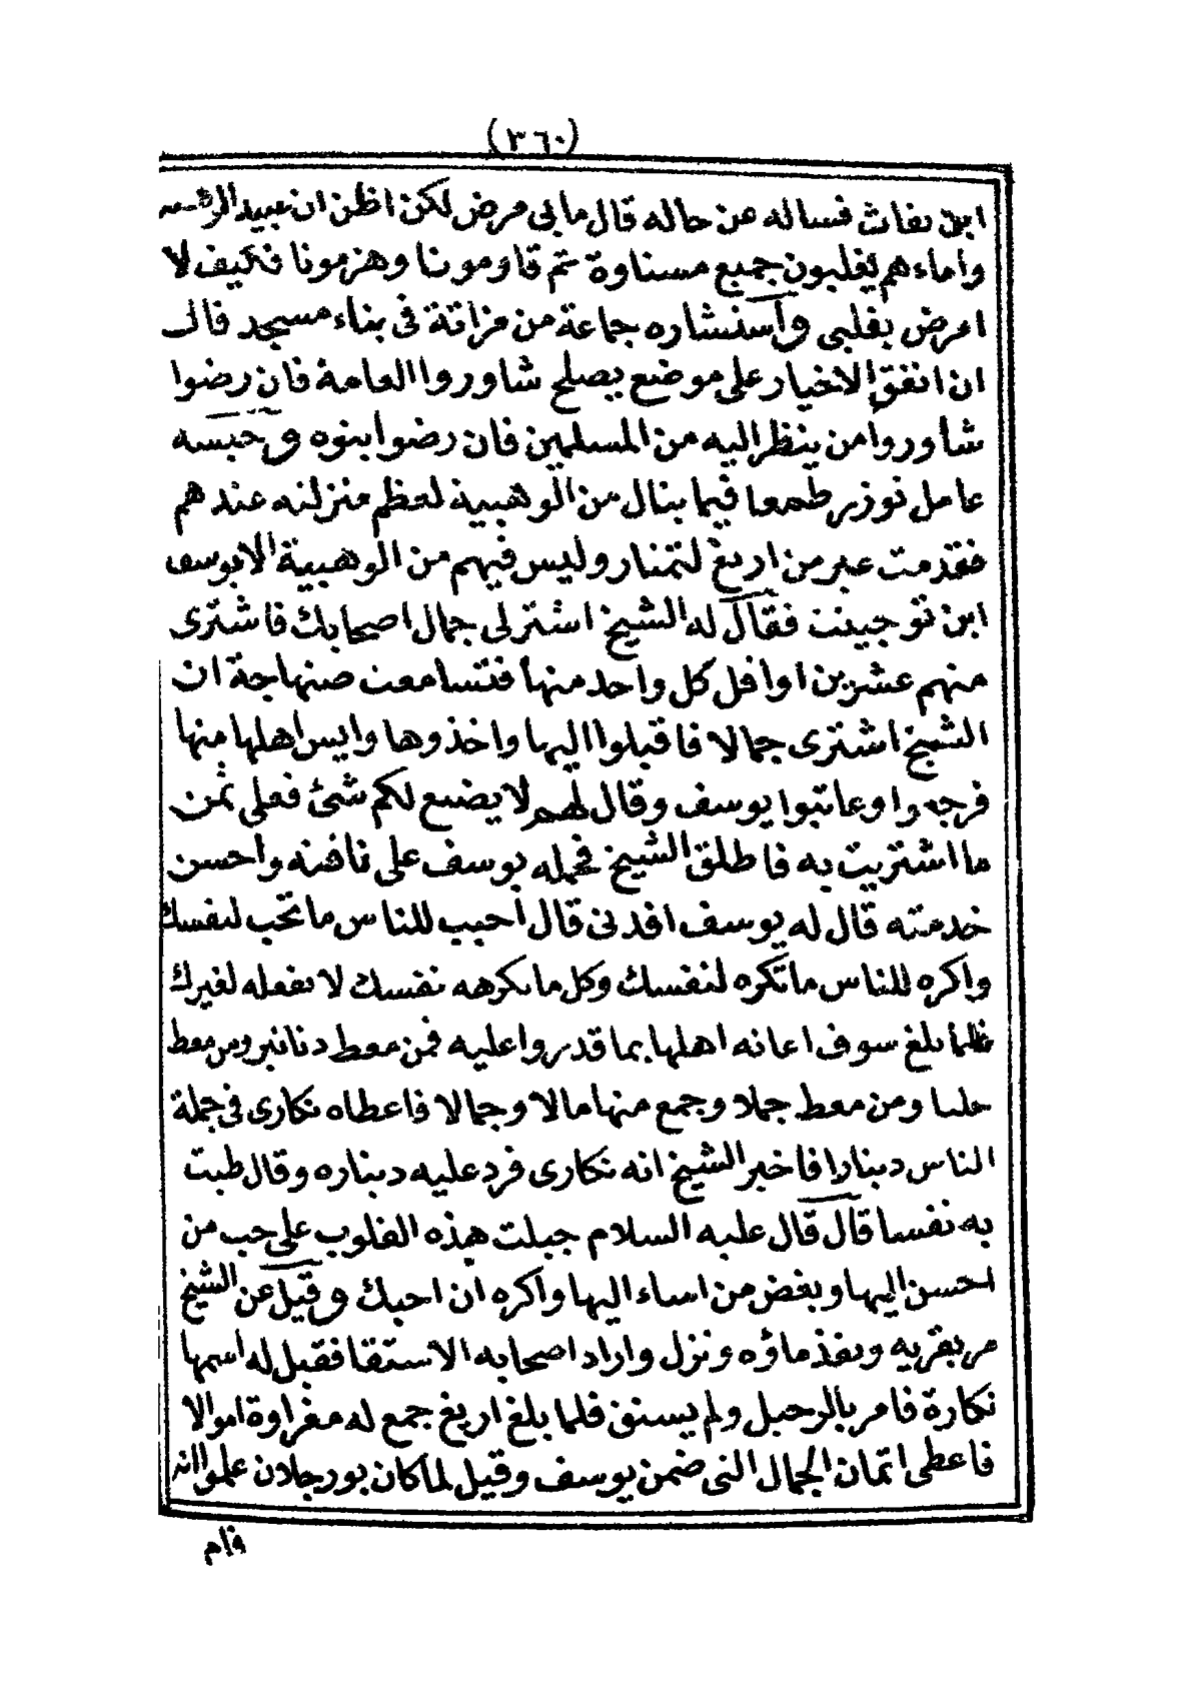 (٣٦٠)
ابن نفاث فساله عن حاله قال مابى مرض لكن اظن ان عبيد
واماءهم يغلبون جميع مسناوة ثم قاومونا وهزمونا فكيف لا
امرض بقلبى واستشاره جماعة من مزاتة فى بناء مسجد قال
ان اتفق الاخيار على موضع يصلح شاوروا العامة فان رضوا
شاوروا من ينظر اليه من المسلمين فان رضوا بنوه وحبسه
عامل توزر طمعا فيما ينال من الوهبية لعظم منزلته عندهم
فقدمت عير من اريغ لتمتار وليس فيهم من الوهبية الا يوسف
ابن توجينت فقال له الشيخ اشتر لى جمال اصحابك فاشترى
منهم عشرين اوافل كل واحد منها فتسامعت صنهاجة ان
الشيخ اشترى جمالا فاقبلوا اليها واخذوها وايس اهلها منها
فرجعوا وعاتبوا يوسف وقال لهم لا يضيع لكم شئ فعلى ثمن
ما اشتريت به فاطلق الشيخ فحمله يوسف على ناقته واحسن
خدمته قال له يوسف افدنى قال احبب للناس ما تحب لنفسك
واكره للناس ما تكره لنفسك وكل ما تكرهه نفسك لا تفعله لغيرك
فلما بلغ سوف اعانه اهلها بما قدروا عليه فمن معط دنانير ومن معط
حليا ومن معط جملا وجمع منها مالا وجمالا فاعطاه نكارى فى جملة
الناس دينارا فاخبر الشيخ انه نكارى فرد عليه ديناره وقال طبت
به نفسا قال قال عليه السلام جبلت هذه القلوب على حب من
احسن اليها وبغض من اساء اليها واكره ان احبك وقيل عن الشيخ
مر بقرية ونفذ ماؤه ونزل واراد اصحابه الاستقا فقيل له اسمها
نكارة فامر بالرحيل ولم يستق فلما بلغ اريغ جمع له مغراوة اموالا
فاعطى اثمان الجمال التى ضمن يوسف وقيل لما كان بورجلان علموا انه